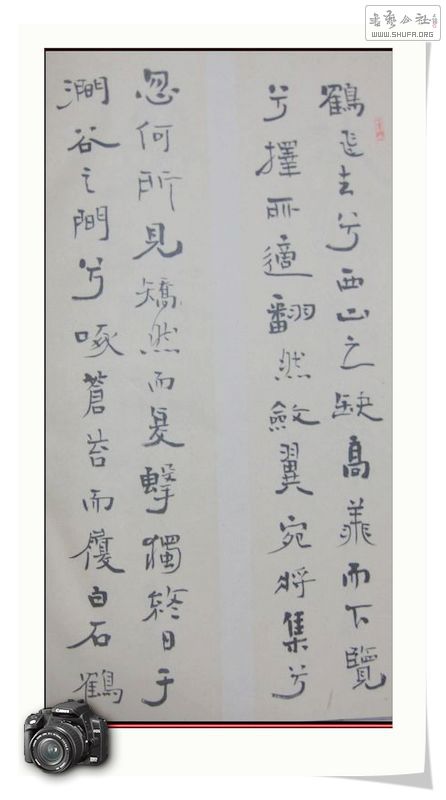 鶴飞去兮西山之缺高翔而下覽
兮擇所適翻然斂翼宛将集兮
忽何所見矯然而复擊獨終日于
澗谷之間兮啄蒼苔而履白石鶴
書藝公社
WWW.SHUFA.ORG
Canon